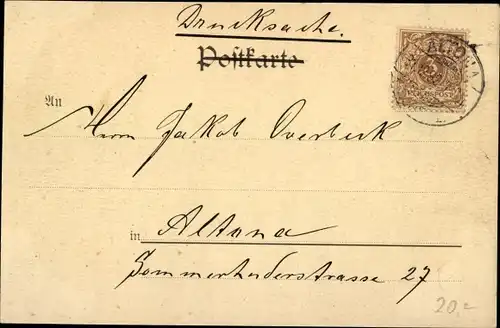 Drucksache.
Postkarte
ALTONA
An
Herrn Jakob Overbeck
in
Altona
Sommerhuderstrasse 27
20,=